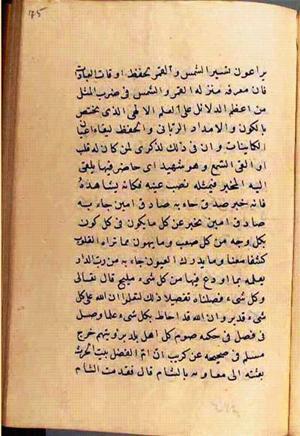 ٧٥
يراعون تسيير الشمس والقمر لحفظ اوقات العبادات
فان معرفة منزلة القمر والشمس في ضرب المثل
من اعظم الدلائل على العلم الالهي الذي يختص
بالكون والامداد الرباني والحفظ لبقاء اعيان
الكاينات وان في ذلك لذكرى لمن كان له قلب
او القى السمع وهو شهيد اى حاضر فيما يلقى
اليه المخبر فيمثله نصب عينيه فكانه يشاهده
فانه خبر صدق جاء به صادق امين جاء به
صادق امين يخبر عن كل ما يكون في كل كون
بكل وجه من كل صعب وما يهون مما تراه القلوب
كشفا معنا وما يدرك العيون جاء به من رتب
يعلمه بما اودع فيها من كل شيء مليح قال تعالى
وكل شيء فصلناه تفصيلا ذلك لتعلموا ان الله على كل
شيء قدير وان الله قد احاط بكل شيء علما وصل
في فصل في حكمه صوم كل اهل بلد برويتهم خرج
مسلم في صحيحه عن كريب ان ام الفضل بنت الحرث
بعثته الى معاوية بالشام قال فقدمت الشام